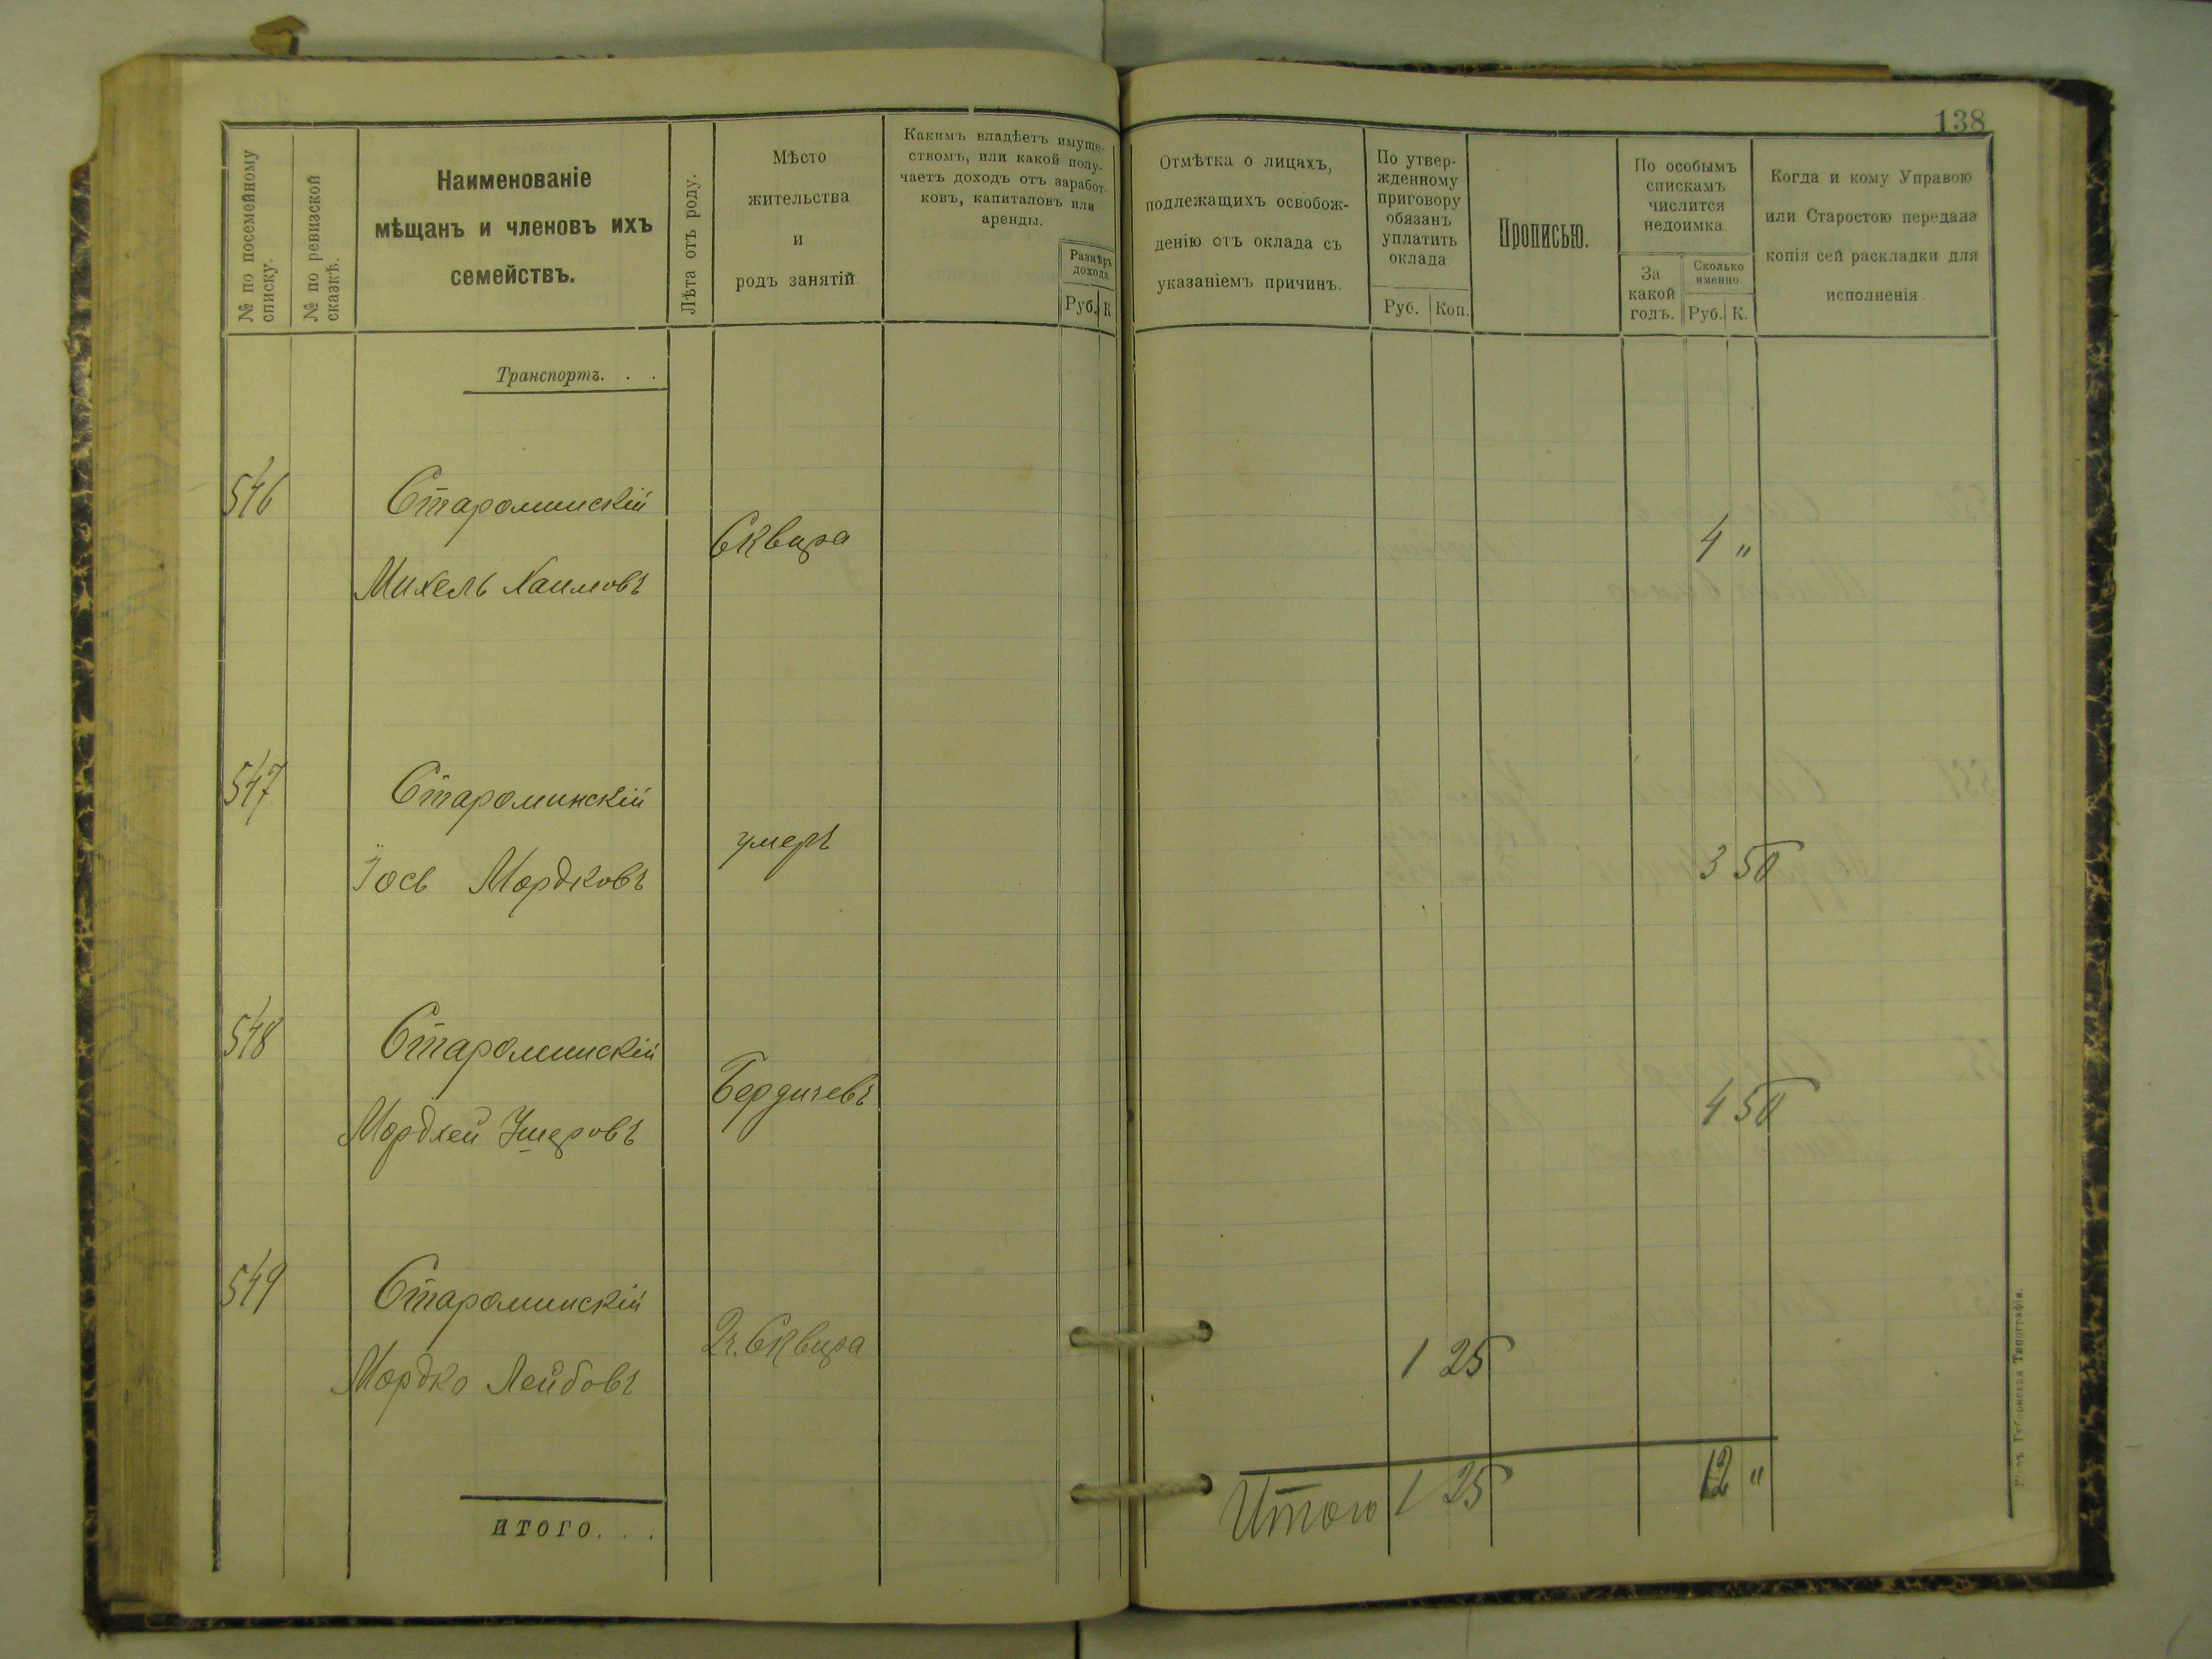 138
№ по посемейному
списку.
№ по ревизской
сказкѣ.
Наименованіе
мѣщанъ и членовъ ихъ
семействъ.
Лѣта отъ роду.
Мѣсто
жительства
и
родъ занятій.
Какимъ владѣетъ имуще-
ствомъ, или какой полу-
чаетъ доходъ отъ заработ-
ковъ, капиталовъ или
аренды.
Размѣръ
дохода.
Руб. К
Отмѣтка о лицахъ,
подлежащихъ освобож-
денію отъ оклада съ
указаніемъ причинъ.
По утвер-
жденному
приговору
обязанъ
уплатить
оклада.
Руб. Коп.
Прописью.
По особымъ
спискамъ
числится
недоимка.
За
какой
годъ.
Сколько
именно.
Руб. К.
Когда и кому Управою
или Старостою передана
копія сей раскладки для
исполненія.
Транспортъ. . .
546 Староминскій
Сквира 4 "
Михель Хаимовъ
547 Староминскій
умеръ 3 50
Іось Мордковъ
548 Староминскій
Бердичевъ 4 50
Мордхей Ушеровъ
549 Староминскій
Сквира 1 25
Мордко Лейбовъ
Итого 1 25 12 "
ИТОГО. . .
Губернская Типографія.